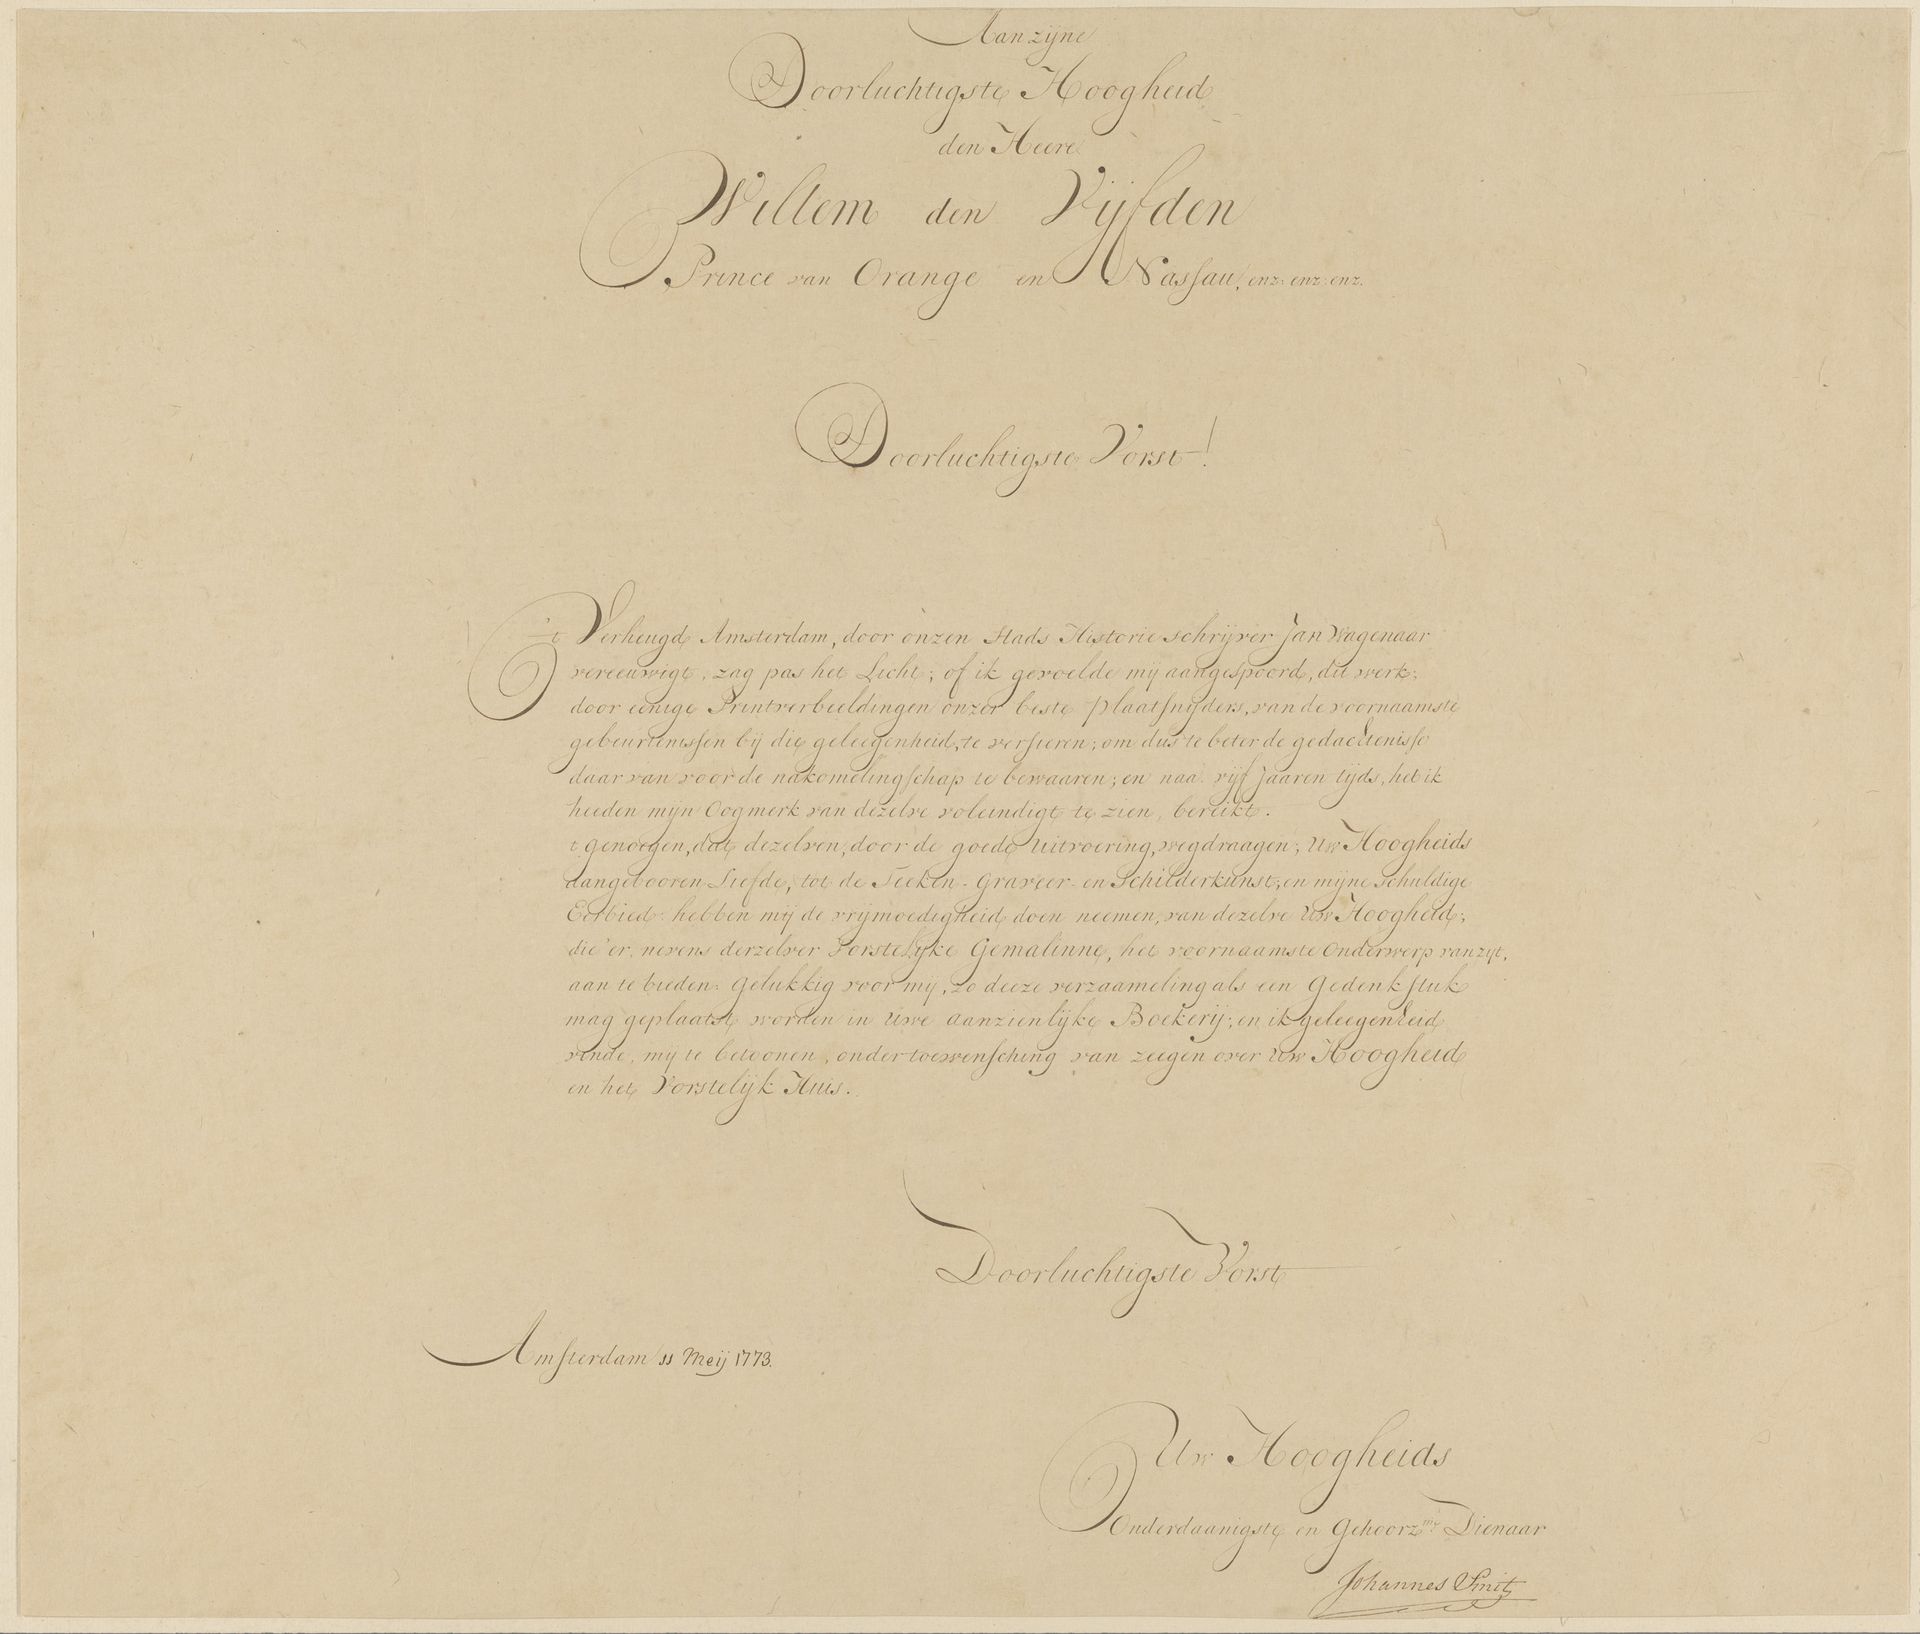 Aan zijne
Doorluchtigste Hoogheid
den Heere
Willem den Vijfden
Prince van Orange en Nassau, enz: enz: enz.
Doorluchtigste Vorst!
't Verheugd Amsterdam, door onzen Stads Historie schrijver Jan Wagenaar
vereeuwigt, zag pas het Licht; of ik gevoelde mij aangespoord, dit werk;
door eenige Printverbeeldingen onzer beste Plaatsnijders, van de voornaamste
gebeurtenissen bij die geleegenheid, te versieren; om dus te beter de gedachtenisse
daar van voor de nakomelingschap te bewaaren; en naa vijf Jaaren tijds, heb ik
heeden mijn Oogmerk van dezelve voleindigt te zien, bereikt.
't genoegen, dat dezelven, door de goede Uitvoering, wegdraagen; Uw Hoogheids
aangebooren Liefde, tot de Teeken- Graveer- en Schilderkunst, en mijne schuldige
Eerbied hebben mij de vrijmoedigheid doen neemen, van dezelve Uw Hoogheid;
die 'er, nevens derzelver Vorstelijke Gemalinne, het voornaamste Onderwerp van zijt,
aan te bieden: Gelukkig voor mij, zo deeze verzaameling als een Gedenkstuk
mag geplaatst worden in Uwe aanzienlijke Boekerij; en ik geleegenheid
vinde, mij te betoonen, onder toewensching van zeegen over Uw Hoogheid
en het Vorstelijk Huis.
Doorluchtigste Vorst
Amsterdam 11 Meij 1773.
Uw Hoogheids
Onderdaanigste en Gehoorz:me Dienaar
Johannes Smit